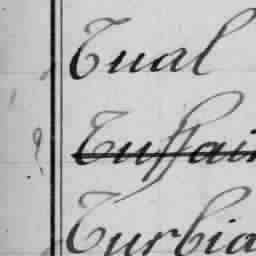 Tual
? Tuffain
Turbia